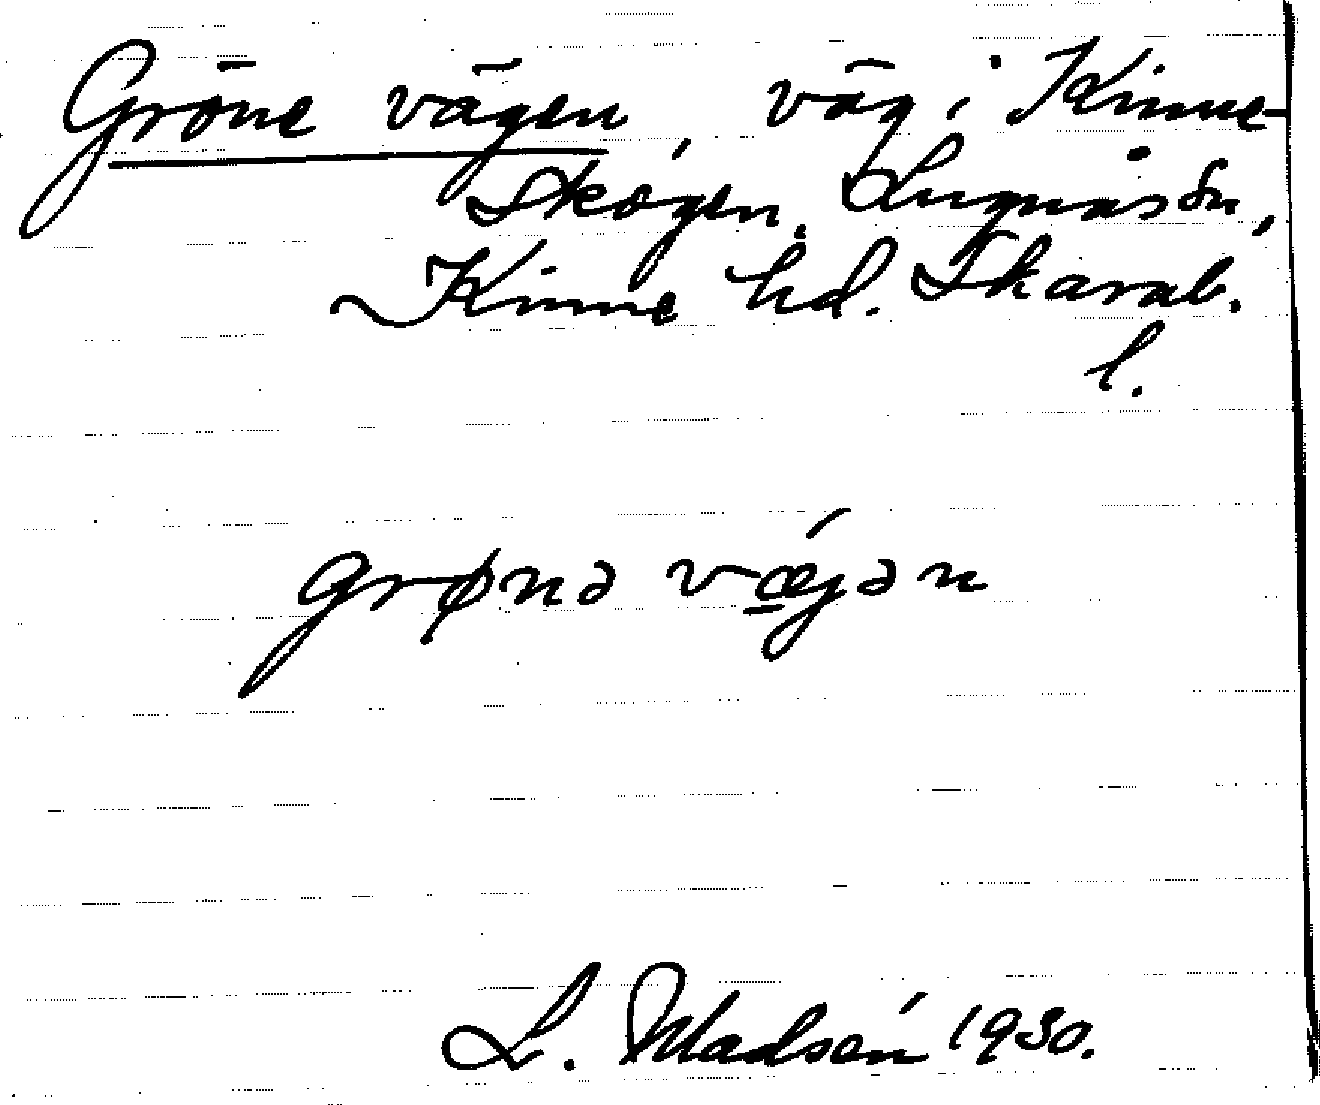 Gröne vägen, väg i Kinne-
Skogen. Lugnås sn,
Kinne hd. Skarab.
l.
grøna vægən
L. Madsén 1930.